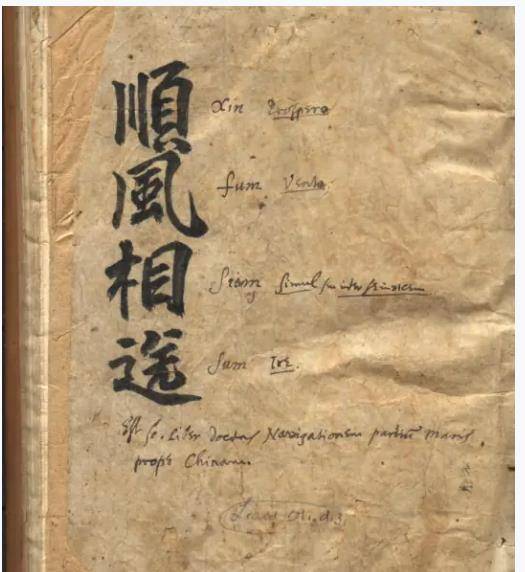 順風相送
Xin Prospero
fum Vento
Siam Simul seu inter se invicem
Sum Ire.
Est sc. Liber docens Navigationem partium maris
prope Chinam.
Laud Or. d. 3.